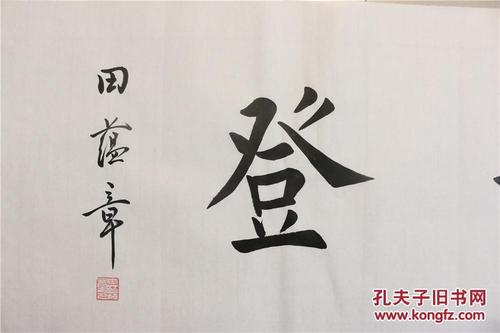 登
田蕴章
孔夫子旧书网
www.kongfz.com